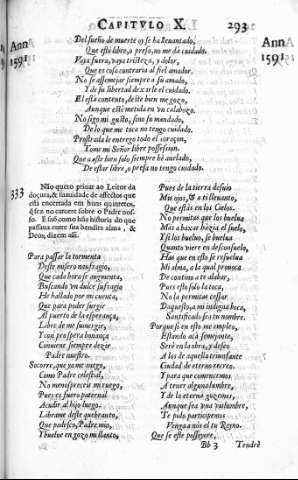 CAPITVLO X.
293
Ann
1591
Ann
1591
Del sueño de muerte os se ha leuantado,
Que está libre, a preso, no me dè cuidado.
Vaya fuera, vaya tristeza, y dolor,
Que es cosa contraria al fiel amador.
No se assemejar siempre a su amado,
Y de su libertad dexarle el cuidado.
El está contento, deste bien me gozo,
Aunque estuuiesse metida en vn calaboço.
No sigo mi gusto, sino su mandado,
De lo que me toca no tengo cuidado.
Prostrada le entrego todo el coraçon,
Tome mi Señor libre possession.
Que a este bien solo siempre he anelado,
De estar libre, o presa no tengo cuidado.
333
Não quero priuar ao Leitor da
doçura, & suauidade de affectos que
està encerrada em huns quintetos,
q̃ fez no carcere sobre o Padre nos-
so. E saõ como hũa historia do que
passaua entre sua bendita alma, &
Deos; dizem assi.
Para passar la tormenta
Deste misero naufragio,
Que cada hora se augmenta,
Buscando vn dulce sufragio
He hallado por mi cuenta,
Que para poder surgir
Al puerto de la esperança,
Libre de me sumergir,
Y con prospera bonança
Conuiene siempre dezir
Padre nuestro.
Socorre, que ya me anego,
Como Padre celestial,
No menosprecies mi ruego,
Pues es fuero paternal
Acudir al hijo luego.
Librame deste quebranto,
Que padesco, Padre mio,
Y buelue en gozo mi llanto,
Pues de la tierra desuio
Mis ojos, & a ti leuanto,
Que estàs en los Cielos.
No permitas que los buelua
Mas a baxar hazia el suelo,
Y si los buelue, se buelua
Quanto viere en desconsuelo,
Haz que en esto se resuelua
Mi alma, a la qual prouoca
De contino a te alabar,
Pues esto solo la toca,
No la permitas cessar
Da questo, a mi indigna boca,
Santificado sea tu nombre.
Porque si en esto me empleo,
Estando acà semejante,
Serè en la obra, y desseo
A los de aquella triunfante
Ciudad de eterno recreo.
Y para que comencemos
A tener alguna lumbre,
Y de la eterna gozemos,
Aunque sea vna vislumbre,
Te pido participemos
Venga a nòs el tu Reyno.
Que se este possèyere,
Bb 3
Tendrè